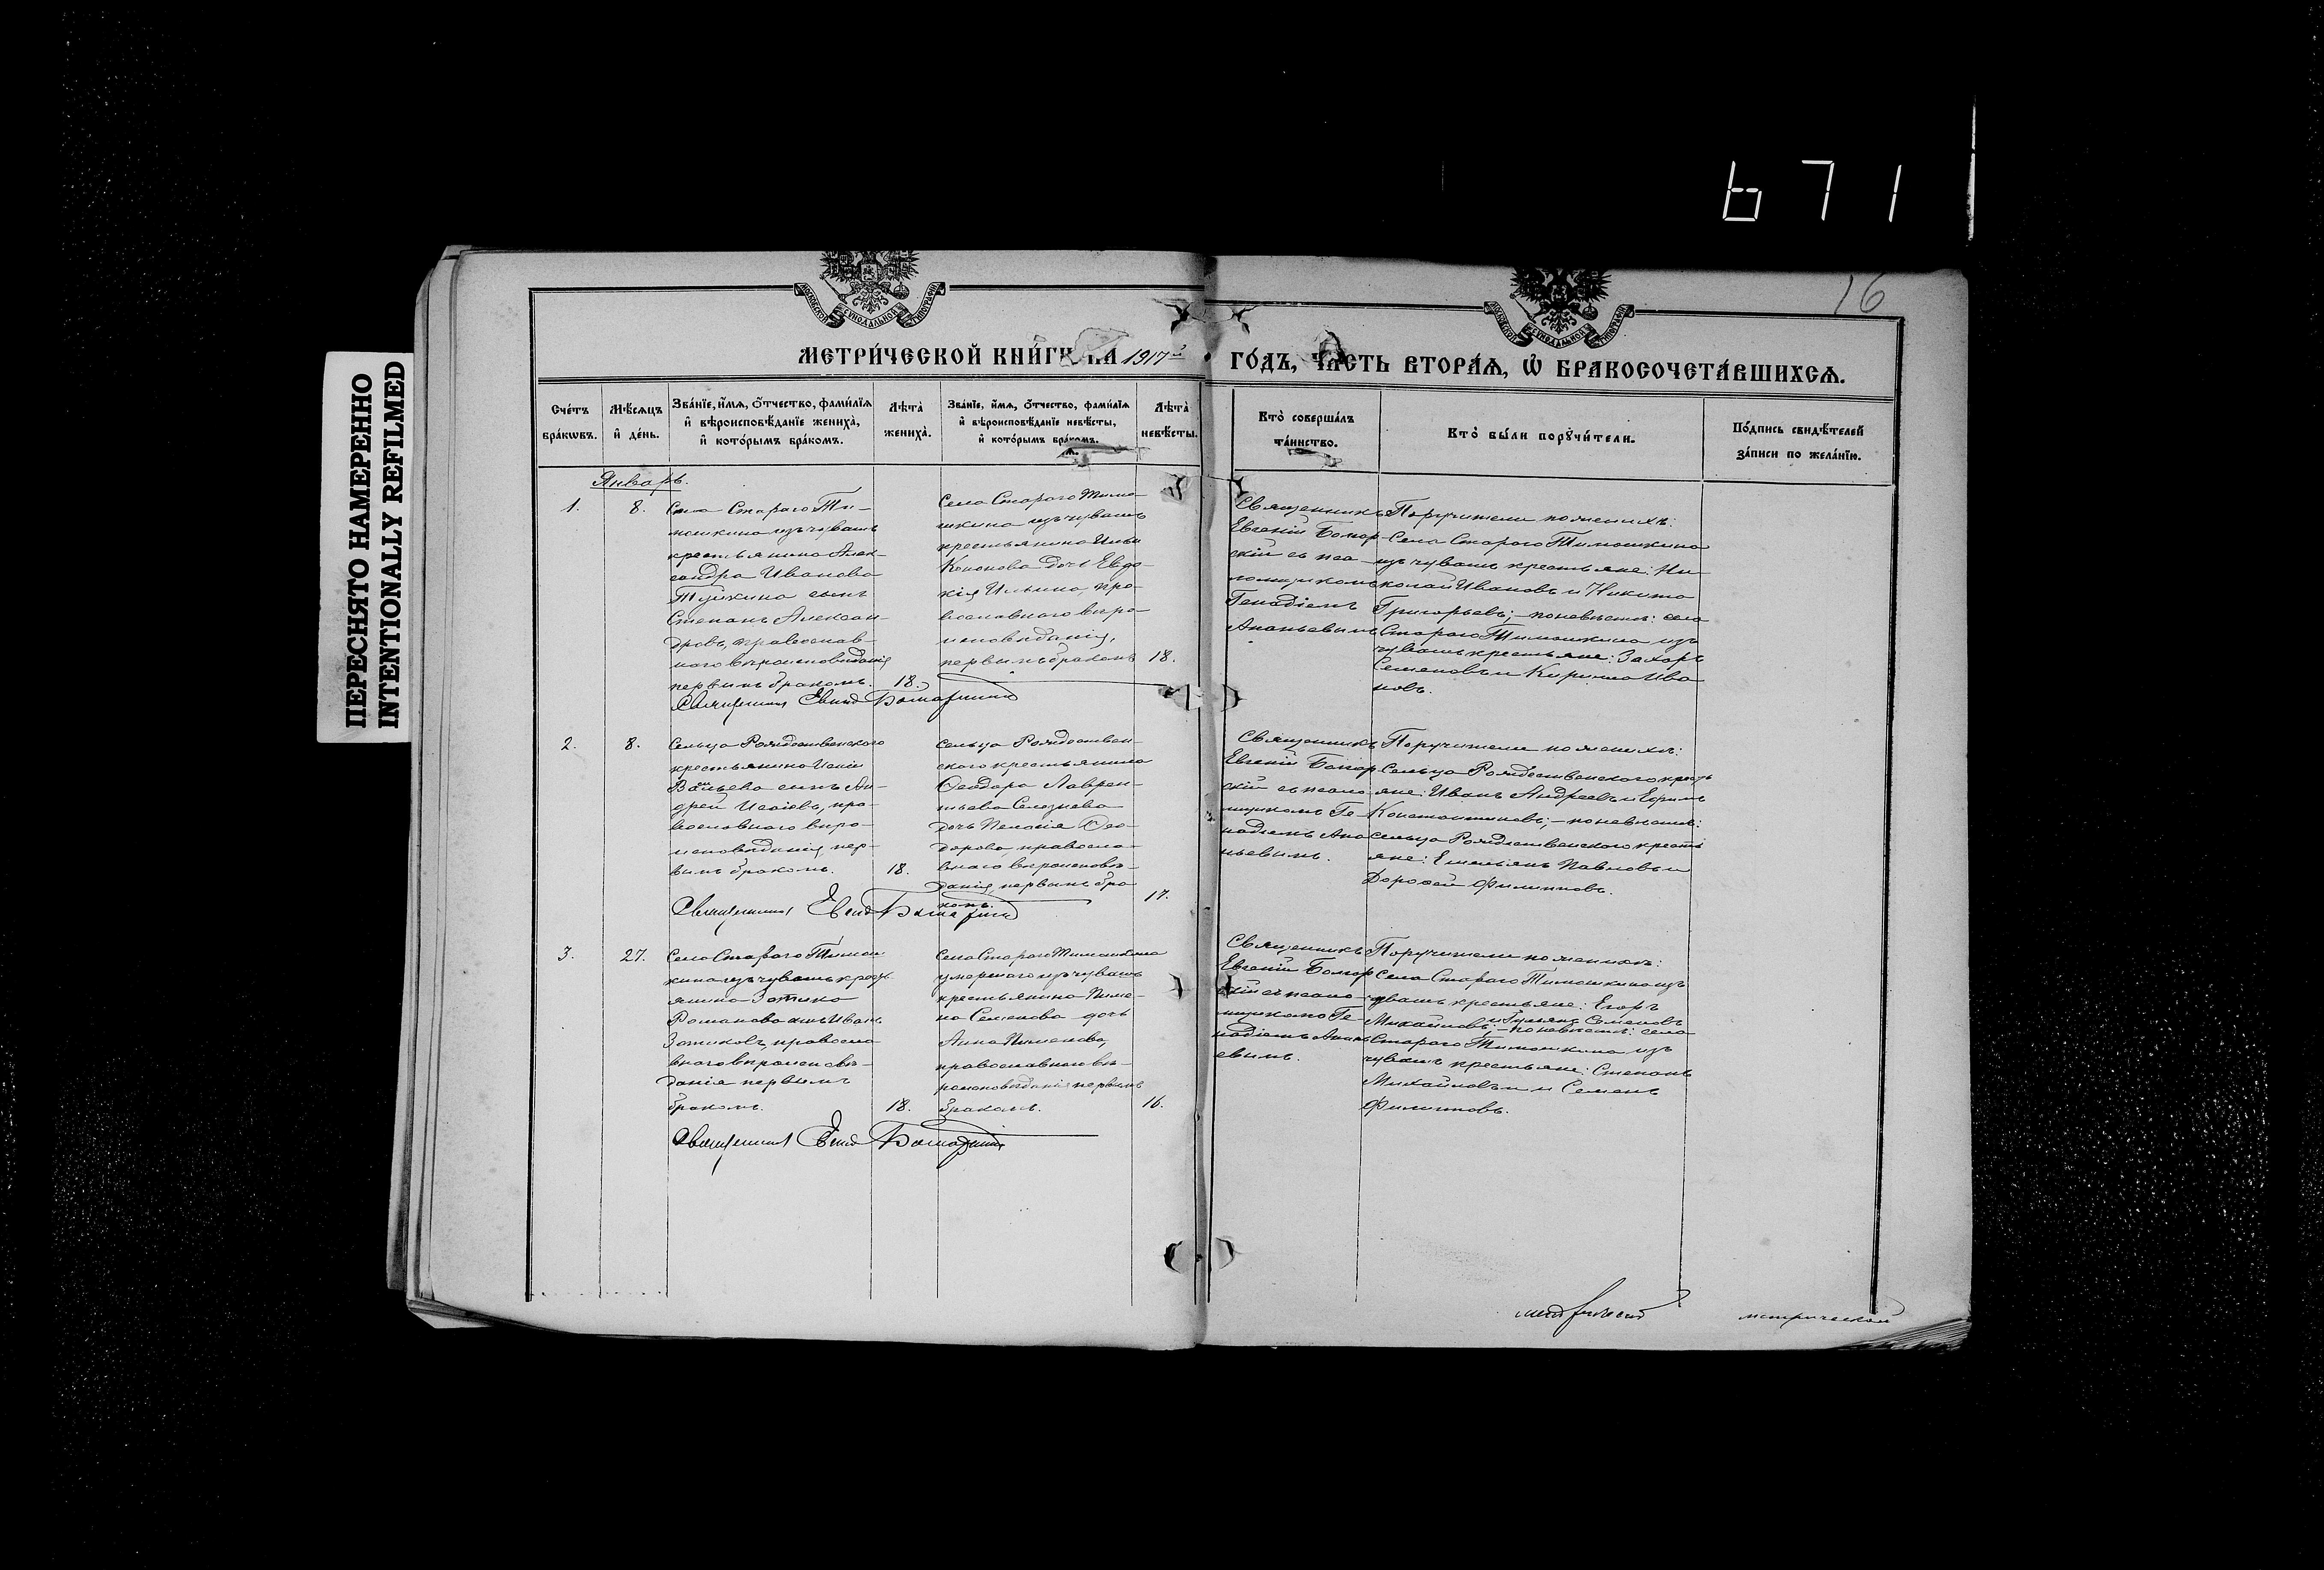 671
ПЕРЕСНЯТО НАМЕРЕННО
INTENTIONALLY REFILMED
16
МОСКОВСКОЙ СѴНОДАЛЬНОЙ ТИПОГРАФІИ
МОСКОВСКОЙ СѴНОДАЛЬНОЙ ТИПОГРАФІИ
МЕТРИ́ЧЕСКОЙ КНИ́ГИ НА 1917й
ГО́ДЪ, ЧАСТЬ ВТОРА́Ѧ, Ѡ҆ БРАКОСОЧЕТА́ВШИХСѦ.
Сче́тъ
бра́кѡвъ.
Мѣ́сѧцъ
и҆ де́нь.
Зва́нїе, и҆́мѧ, ѻ҆́тчество, фами́лїѧ
и҆ вѣроисповѣ́данїе жениха̀,
и҆ кото́рымъ бра́комъ.
Лѣта̀
жениха̀.
Зва́нїе, и҆́мѧ, ѻ҆́тчество, фами́лїѧ
и҆ вѣроисповѣ́данїе невѣ́сты,
и҆ кото́рымъ бра́комъ.
Лѣта̀
невѣ́сты.
Кто̀ соверша́лъ
та́инство.
Кто̀ бы́ли порꙋчи́тели.
По́дпись свидѣ́телей
за́писи по жела́нїю.
Январь.
1.
8.
Села Стараго Ти-
мошкина изъ чувашъ
крестьянина Алек-
сандра Иванова
сынъ
Степанъ Алексан-
дровъ, православ-
наго вѣроисповѣданія
первымъ бракомъ.
18.
Села Стараго Тимо-
шкина изъ чувашъ
крестьянина Ильи
Кононова дочь Евдо-
кія Ильина, пра-
вославнаго вѣро-
исповѣданія,
первымъ бракомъ
18.
Священникъ
Евгеній Бомар-
скій съ пса-
ломщикомъ
Генадіемъ
Ананьевымъ
Поручители по женихѣ:
Села Стараго Тимошкина
изъ чувашъ крестьяне: Ни-
колай Ивановъ и Никита
Григорьевъ; – по невѣстѣ: села
Стараго Тимошкина изъ
чувашъ крестьяне: Захаръ
Семеновъ и Кирилла Ива
новъ.
Священникъ
2.
8.
Сельца Рождественскаго
крестьянина Исаіи
сынъ Ан-
дрей Исаіевъ, пра-
вославнаго вѣро-
исповѣданія, пер-
вымъ бракомъ.
18.
Сельца Рождествен-
скаго крестьянина
Ѳеодора Лаврен-
тьева Селезнева
дочь Пелагія Ѳео-
дорова, правосла-
внаго вѣроисповѣ-
данія, первымъ бра
комъ.
17.
Священникъ
Евгеній Бомар
скій съ псало-
мщикомъ Ге-
надіемъ Ана
ньевымъ.
Поручители по женихѣ:
Сельца Рождественскаго кресть
яне: Иванъ Андреевъ и Ефимъ
Константиновъ; – по невѣстѣ:
сельца Рождественскаго кресть
яне: Емельянъ Павловъ и
Дорофей Филипповъ.
Священникъ
3.
27.
Села Стараго Тимош
кина изъ чувашъ кресть
янина Зотика
Романова сынъ Иванъ
Зотиковъ, правосла
внаго вѣроисповѣ-
данія первымъ
бракомъ.
18.
Села Стараго Тимошкина
умершаго изъ чувашъ
крестьянина Пиме-
на Семенова дочь
Анна Пименова,
православнаго вѣ-
роисповѣданія первымъ
бракомъ.
16.
Священникъ
Евгеній Бомар
скій съ псало-
мщикомъ Ге-
надіемъ Анань
евымъ.
Поручители по женихѣ:
Села Стараго Тимошкина изъ
чувашъ крестьяне: Егоръ
Михайловъ и Семеновъ
– по невѣстѣ: села
Стараго Тимошкина изъ
чувашъ крестьяне: Степанъ
Михайловъ и Семенъ
Филипповъ.
Священникъ
метрической